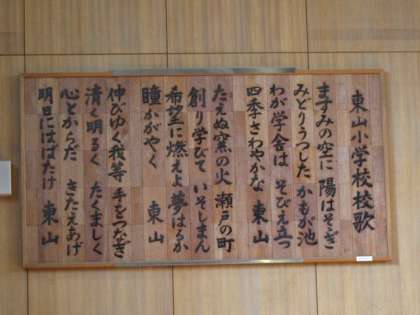 東山小学校校歌
ますみの空に　陽はそそぎ
みどりうつした　かもが池
わが学舎は　そびえ立つ
四季さわやかな　東山
たえぬ窯の火　瀬戸の町
創り学びて　いそしまん
希望に燃えよ　夢はるか
瞳かがやく　東山
伸びゆく我等　手をつなぎ
清く明るく　たくましく
心とからだ　きたえあげ
明日にはばたけ　東山